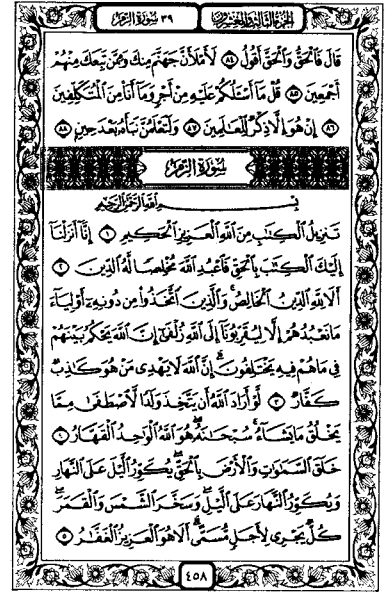 الجزء الثالث والعشرون
٣٩ سورة الزمر
قَالَ فَٱلْحَقُّ وَٱلْحَقَّ أَقُولُ ٨٤ لَأَمْلَأَنَّ جَهَنَّمَ مِنكَ وَمِمَّن تَبِعَكَ مِنْهُمْ
أَجْمَعِينَ ٨٥ قُلْ مَآ أَسْـَٔلُكُمْ عَلَيْهِ مِنْ أَجْرٍ وَمَآ أَنَا۠ مِنَ ٱلْمُتَكَلِّفِينَ
٨٦ إِنْ هُوَ إِلَّا ذِكْرٌ لِّلْعَـٰلَمِينَ ٨٧ وَلَتَعْلَمُنَّ نَبَأَهُۥ بَعْدَ حِينٍۭ ٨٨
سورة الزمر
بِسْمِ ٱللَّهِ ٱلرَّحْمَـٰنِ ٱلرَّحِيمِ
تَنزِيلُ ٱلْكِتَـٰبِ مِنَ ٱللَّهِ ٱلْعَزِيزِ ٱلْحَكِيمِ ١ إِنَّآ أَنزَلْنَآ
إِلَيْكَ ٱلْكِتَـٰبَ بِٱلْحَقِّ فَٱعْبُدِ ٱللَّهَ مُخْلِصًا لَّهُ ٱلدِّينَ ٢
أَلَا لِلَّهِ ٱلدِّينُ ٱلْخَالِصُ ۚ وَٱلَّذِينَ ٱتَّخَذُوا۟ مِن دُونِهِۦٓ أَوْلِيَآءَ
مَا نَعْبُدُهُمْ إِلَّا لِيُقَرِّبُونَآ إِلَى ٱللَّهِ زُلْفَىٰٓ إِنَّ ٱللَّهَ يَحْكُمُ بَيْنَهُمْ
فِى مَا هُمْ فِيهِ يَخْتَلِفُونَ ۗ إِنَّ ٱللَّهَ لَا يَهْدِى مَنْ هُوَ كَـٰذِبٌ
كَفَّارٌ ٣ لَّوْ أَرَادَ ٱللَّهُ أَن يَتَّخِذَ وَلَدًا لَّٱصْطَفَىٰ مِمَّا
يَخْلُقُ مَا يَشَآءُ ۚ سُبْحَـٰنَهُۥ ۖ هُوَ ٱللَّهُ ٱلْوَٰحِدُ ٱلْقَهَّارُ ٤
خَلَقَ ٱلسَّمَـٰوَٰتِ وَٱلْأَرْضَ بِٱلْحَقِّ ۖ يُكَوِّرُ ٱلَّيْلَ عَلَى ٱلنَّهَارِ
وَيُكَوِّرُ ٱلنَّهَارَ عَلَى ٱلَّيْلِ ۖ وَسَخَّرَ ٱلشَّمْسَ وَٱلْقَمَرَ ۖ
كُلٌّ يَجْرِى لِأَجَلٍ مُّسَمًّى ۗ أَلَا هُوَ ٱلْعَزِيزُ ٱلْغَفَّـٰرُ ٥
٤٥٨